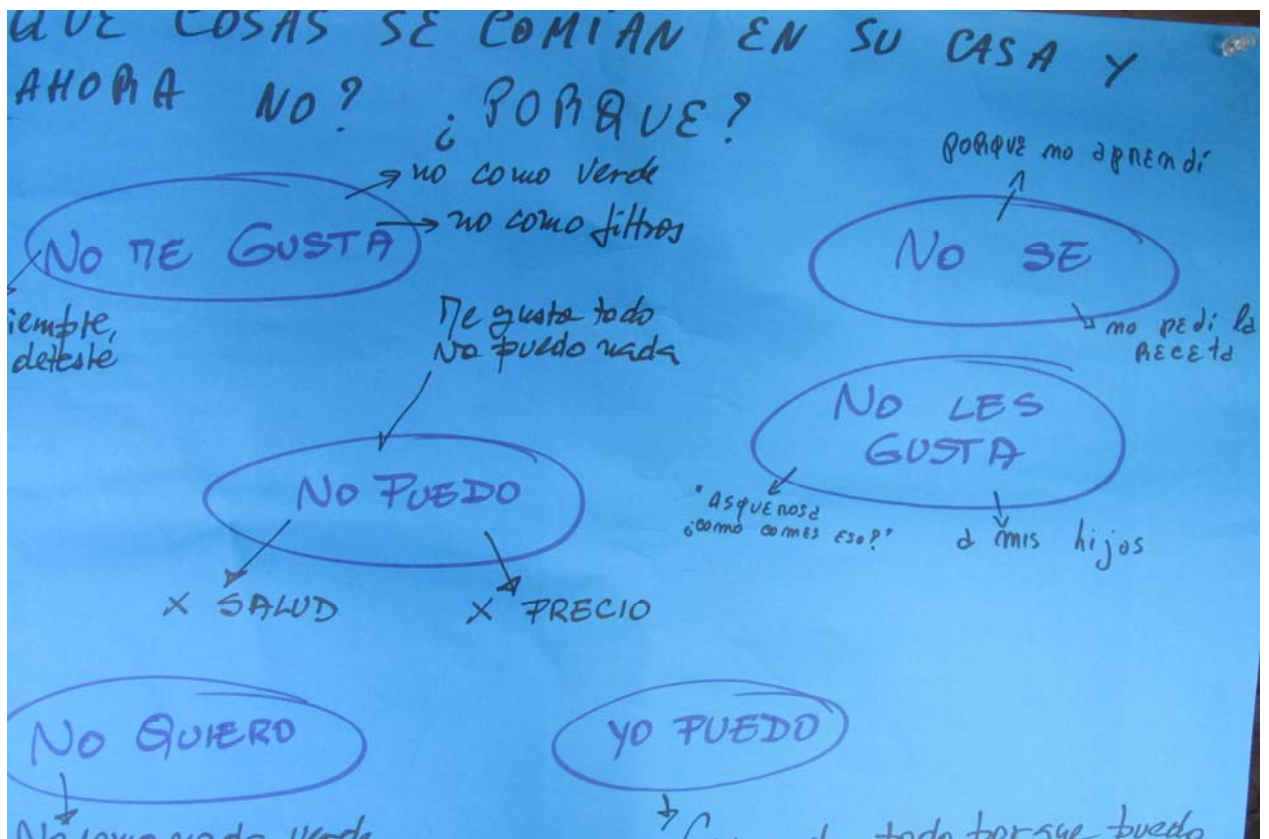 QUE COSAS SE COMIAN EN SU CASA Y
AHORA NO? ¿PORQUE?
NO ME GUSTA
no como verde
no como filtros
siempre,
deteste
Me gusta todo
No puedo nada
NO PUEDO
X SALUD
X PRECIO
porque no aprendí
NO SE
no pedi la
receta
NO LES
GUSTA
"asquerosa
¿como comes eso?"
a mis hijos
NO QUIERO
No como nada verde
YO PUEDO
todo porque puedo